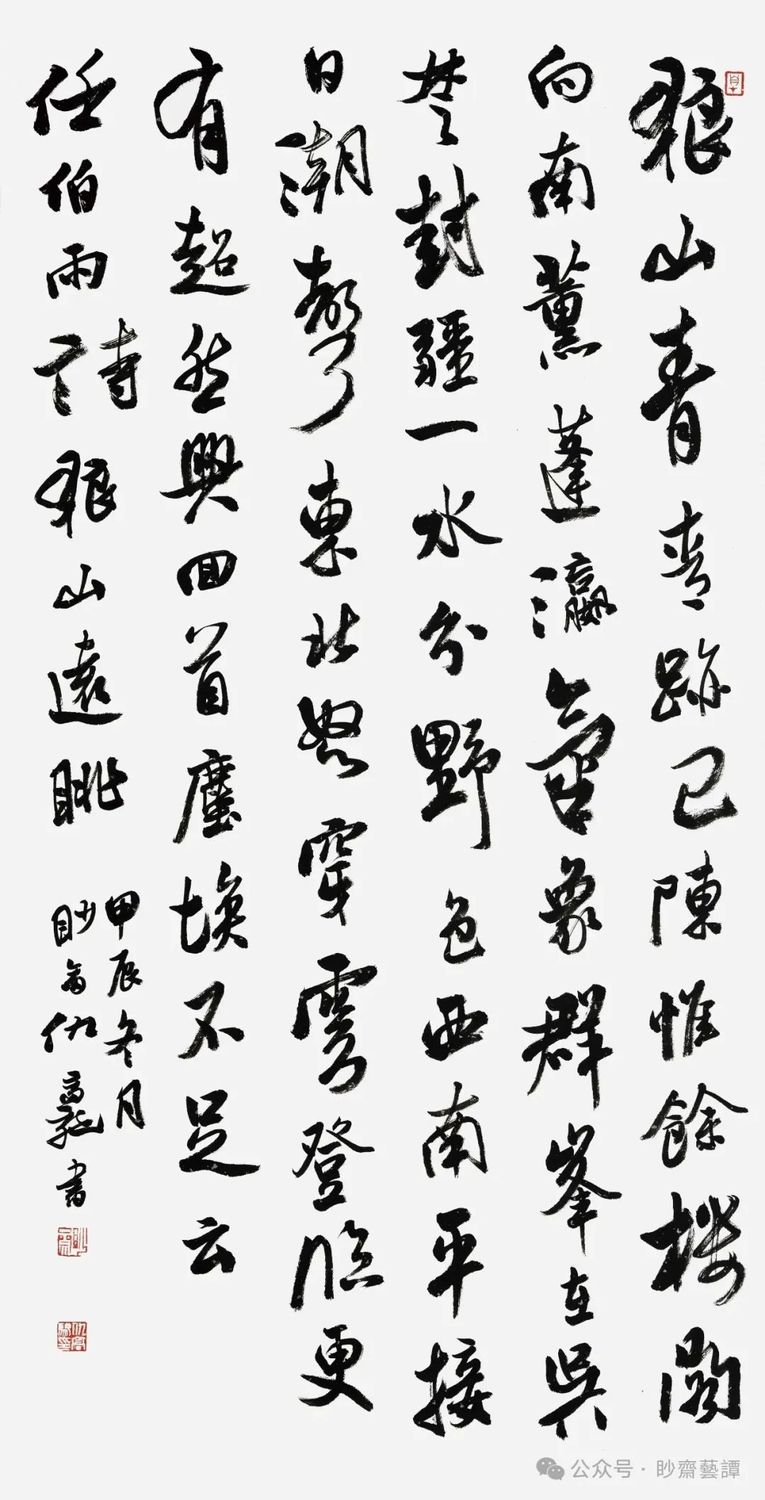 狼山青跡已陳惟餘樓閣
向南薰蓬瀛氣象群峯在吳
楚封疆一水分野色西南平接
日潮聲東北怒穿雲登臨更
有超然興回首塵埃不足云
任伯雨詩狼山遠眺
甲辰冬月
眇齋仇高馳書
公众号·眇齋藝譚